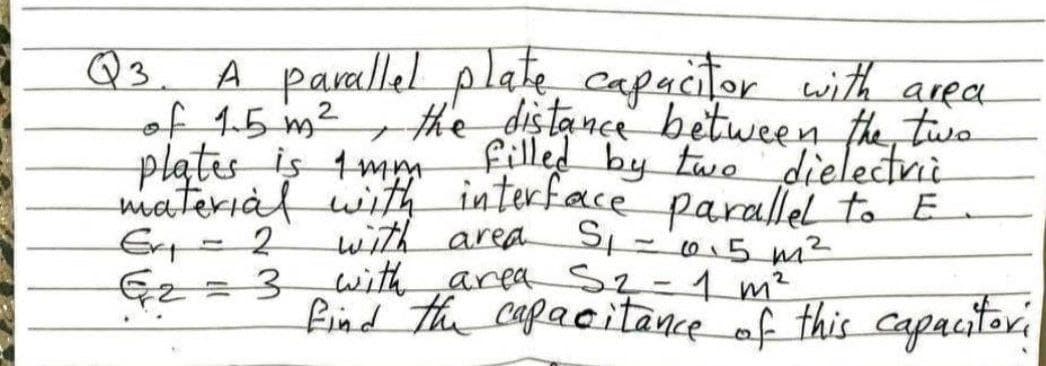 Q3. A parallel plate capacitor with area
of 1.5 m² , the distance between the two
plates is 1mm filled by two dielectric
material with interface parallel to E .
Єr1 = 2 with area S1 = 0.5 m²
Єr2 = 3 with area S2 = 1 m²
find the capacitance of this capacitor;